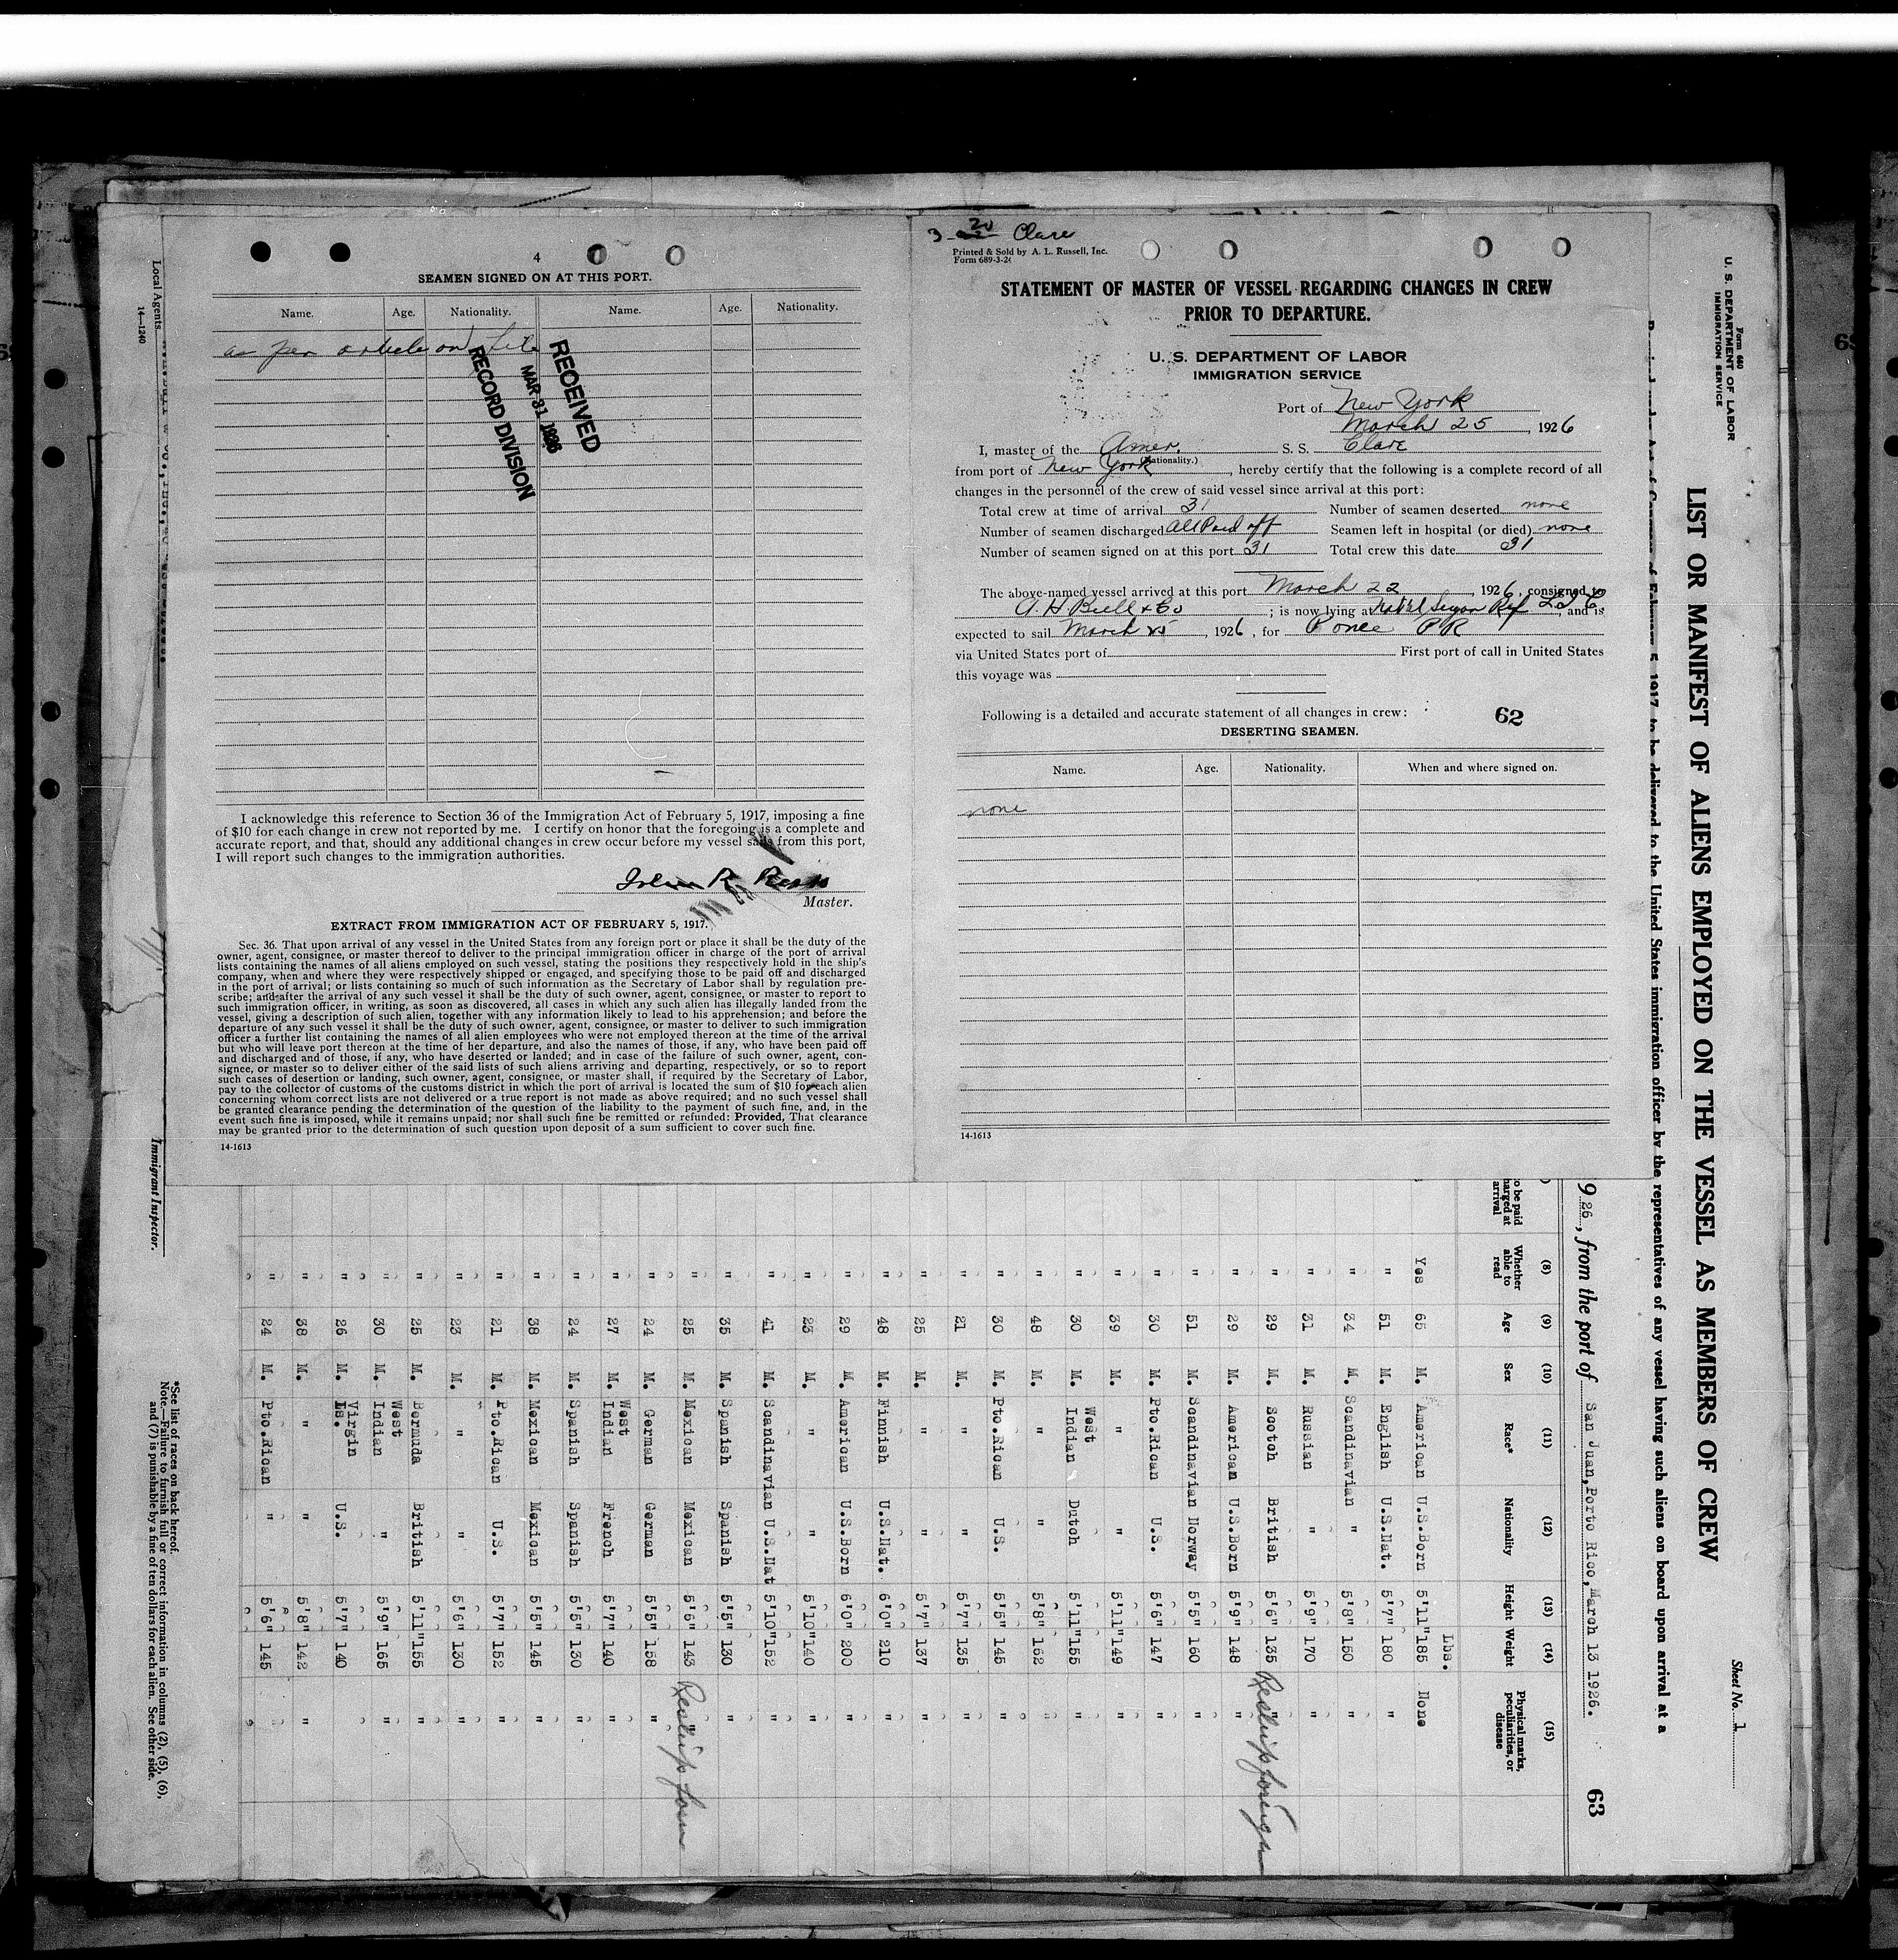 4
SEAMEN SIGNED ON AT THIS PORT.
Name. Age. Nationality. Name. Age. Nationality.
as per article on file
RECEIVED
MAR 31 1926
RECORD DIVISION
I acknowledge this reference to Section 36 of the Immigration Act of February 5, 1917, imposing a fine
of $10 for each change in crew not reported by me. I certify on honor that the foregoing is a complete and
accurate report, and that, should any additional changes in crew occur before my vessel sails from this port,
I will report such changes to the immigration authorities.
John R
Master.
EXTRACT FROM IMMIGRATION ACT OF FEBRUARY 5, 1917.
Sec. 36. That upon arrival of any vessel in the United States from any foreign port or place it shall be the duty of the
owner, agent, consignee, or master thereof to deliver to the principal immigration officer in charge of the port of arrival
lists containing the names of all aliens employed on such vessel, stating the positions they respectively hold in the ship's
company, when and where they were respectively shipped or engaged, and specifying those to be paid off and discharged
in the port of arrival; or lists containing so much of such information as the Secretary of Labor shall by regulation pre-
scribe; and after the arrival of any such vessel it shall be the duty of such owner, agent, consignee, or master to report to
such immigration officer, in writing, as soon as discovered, all cases in which any such alien has illegally landed from the
vessel, giving a description of such alien, together with any information likely to lead to his apprehension; and before the
departure of any such vessel it shall be the duty of such owner, agent, consignee, or master to deliver to such immigration
officer a further list containing the names of all alien employees who were not employed thereon at the time of the arrival
but who will leave port thereon at the time of her departure, and also the names of those, if any, who have been paid off
and discharged and of those, if any, who have deserted or landed; and in case of the failure of such owner, agent, con-
signee, or master so to deliver either of the said lists of such aliens arriving and departing, respectively, or so to report
such cases of desertion or landing, such owner, agent, consignee, or master shall, if required by the Secretary of Labor,
pay to the collector of customs of the customs district in which the port of arrival is located the sum of $10 for each alien
concerning whom correct lists are not delivered or a true report is not made as above required; and no such vessel shall
be granted clearance pending the determination of the question of the liability to the payment of such fine, and, in the
event such fine is imposed, while it remains unpaid; nor shall such fine be remitted or refunded: Provided, That clearance
may be granted prior to the determination of such question upon deposit of a sum sufficient to cover such fine.
14-1613
3 20 Clare
Printed & Sold by A. L. Russell, Inc.
Form 689-3-24
STATEMENT OF MASTER OF VESSEL REGARDING CHANGES IN CREW
PRIOR TO DEPARTURE.
U. S. DEPARTMENT OF LABOR
IMMIGRATION SERVICE
Port of New York
March 25, 1926
I, master of the Amer. S. S. Clare
(Nationality.)
from port of New York, hereby certify that the following is a complete record of all
changes in the personnel of the crew of said vessel since arrival at this port:
Total crew at time of arrival 31 Number of seamen deserted none
Number of seamen discharged All Paid off Seamen left in hospital (or died) none
Number of seamen signed on at this port 31 Total crew this date 31
The above-named vessel arrived at this port March 22, 1926, consigned to
A. H Bull & Co; is now lying at, and is
expected to sail March 25, 1926, for Ponce PR
via United States port of First port of call in United States
this voyage was
Following is a detailed and accurate statement of all changes in crew:
62
DESERTING SEAMEN.
Name. Age. Nationality. When and where signed on.
none
14-1613
Form 680
U. S. DEPARTMENT OF LABOR
IMMIGRATION SERVICE
Sheet No. 1
LIST OR MANIFEST OF ALIENS EMPLOYED ON THE VESSEL AS MEMBERS OF CREW
Act of Congress of February 5, 1917, to be delivered to the United States immigration officer by the representatives of any vessel having such aliens on board upon arrival at a
926, from the port of San Juan,Porto Rico,March 13 1926.
63
(8) (9) (10) (11) (12) (13) (14) (15)
Whether able to read Age Sex Race* Nationality Height Weight Physical marks, peculiarities, or disease
Lbs.
Yes 65 M. American U.S.Born 5'11" 185 None
" 51 M. English U.S.Nat. 5'7" 180 "
" 34 M. Scandinavian " 5'8" 150 "
" 31 M. Russian " 5'9" 170 "
" 29 M. Scotch British 5'6" 135 " Reship foreign
" 29 M. American U.S.Born 5'9" 148 "
" 51 M. Scandinavian Norway 5'5" 160 "
" 30 M. Pto.Rican U.S. 5'6" 147 "
" 39 M. " " 5'11" 149 "
" 30 M. West Indian Dutch 5'11" 155 "
" 48 M. " " 5'8" 162 "
" 30 M. Pto.Rican U.S. 5'5" 145 "
" 21 M. " " 5'7" 135 "
" 25 M. " " 5'7" 137 "
" 48 M. Finnish U.S.Nat. 6'0" 210 "
" 29 M. American U.S.Born 6'0" 200 "
" 23 M. " " 5'10" 140 "
" 41 M. Scandinavian U.S.Nat 5'10" 152 "
" 35 M. Spanish Spanish 5'5" 130 "
" 25 M. Mexican Mexican 5'6" 143 " Reship
" 24 M. German German 5'5" 158 "
" 27 M. West Indian French 5'7" 140 "
" 24 M. Spanish Spanish 5'5" 130 "
" 38 M. Mexican Mexican 5'5" 145 "
" 21 M. Pto.Rican U.S. 5'7" 152 "
" 23 M. " " 5'6" 130 "
" 25 M. Bermuda British 5'11" 155 "
" 30 M. West Indian " 5'9" 165 "
" 26 M. Virgin Is. U.S. 5'7" 140 "
" 38 M. " " 5'8" 142 "
" 24 M. Pto.Rican " 5'6" 145 "
*See list of races on back hereof.
Note.—Failure to furnish full or correct information in columns (2), (5), (6),
and (7) is punishable by a fine of ten dollars for each alien. See other side.
Immigrant Inspector.
Local Agents
14—1240